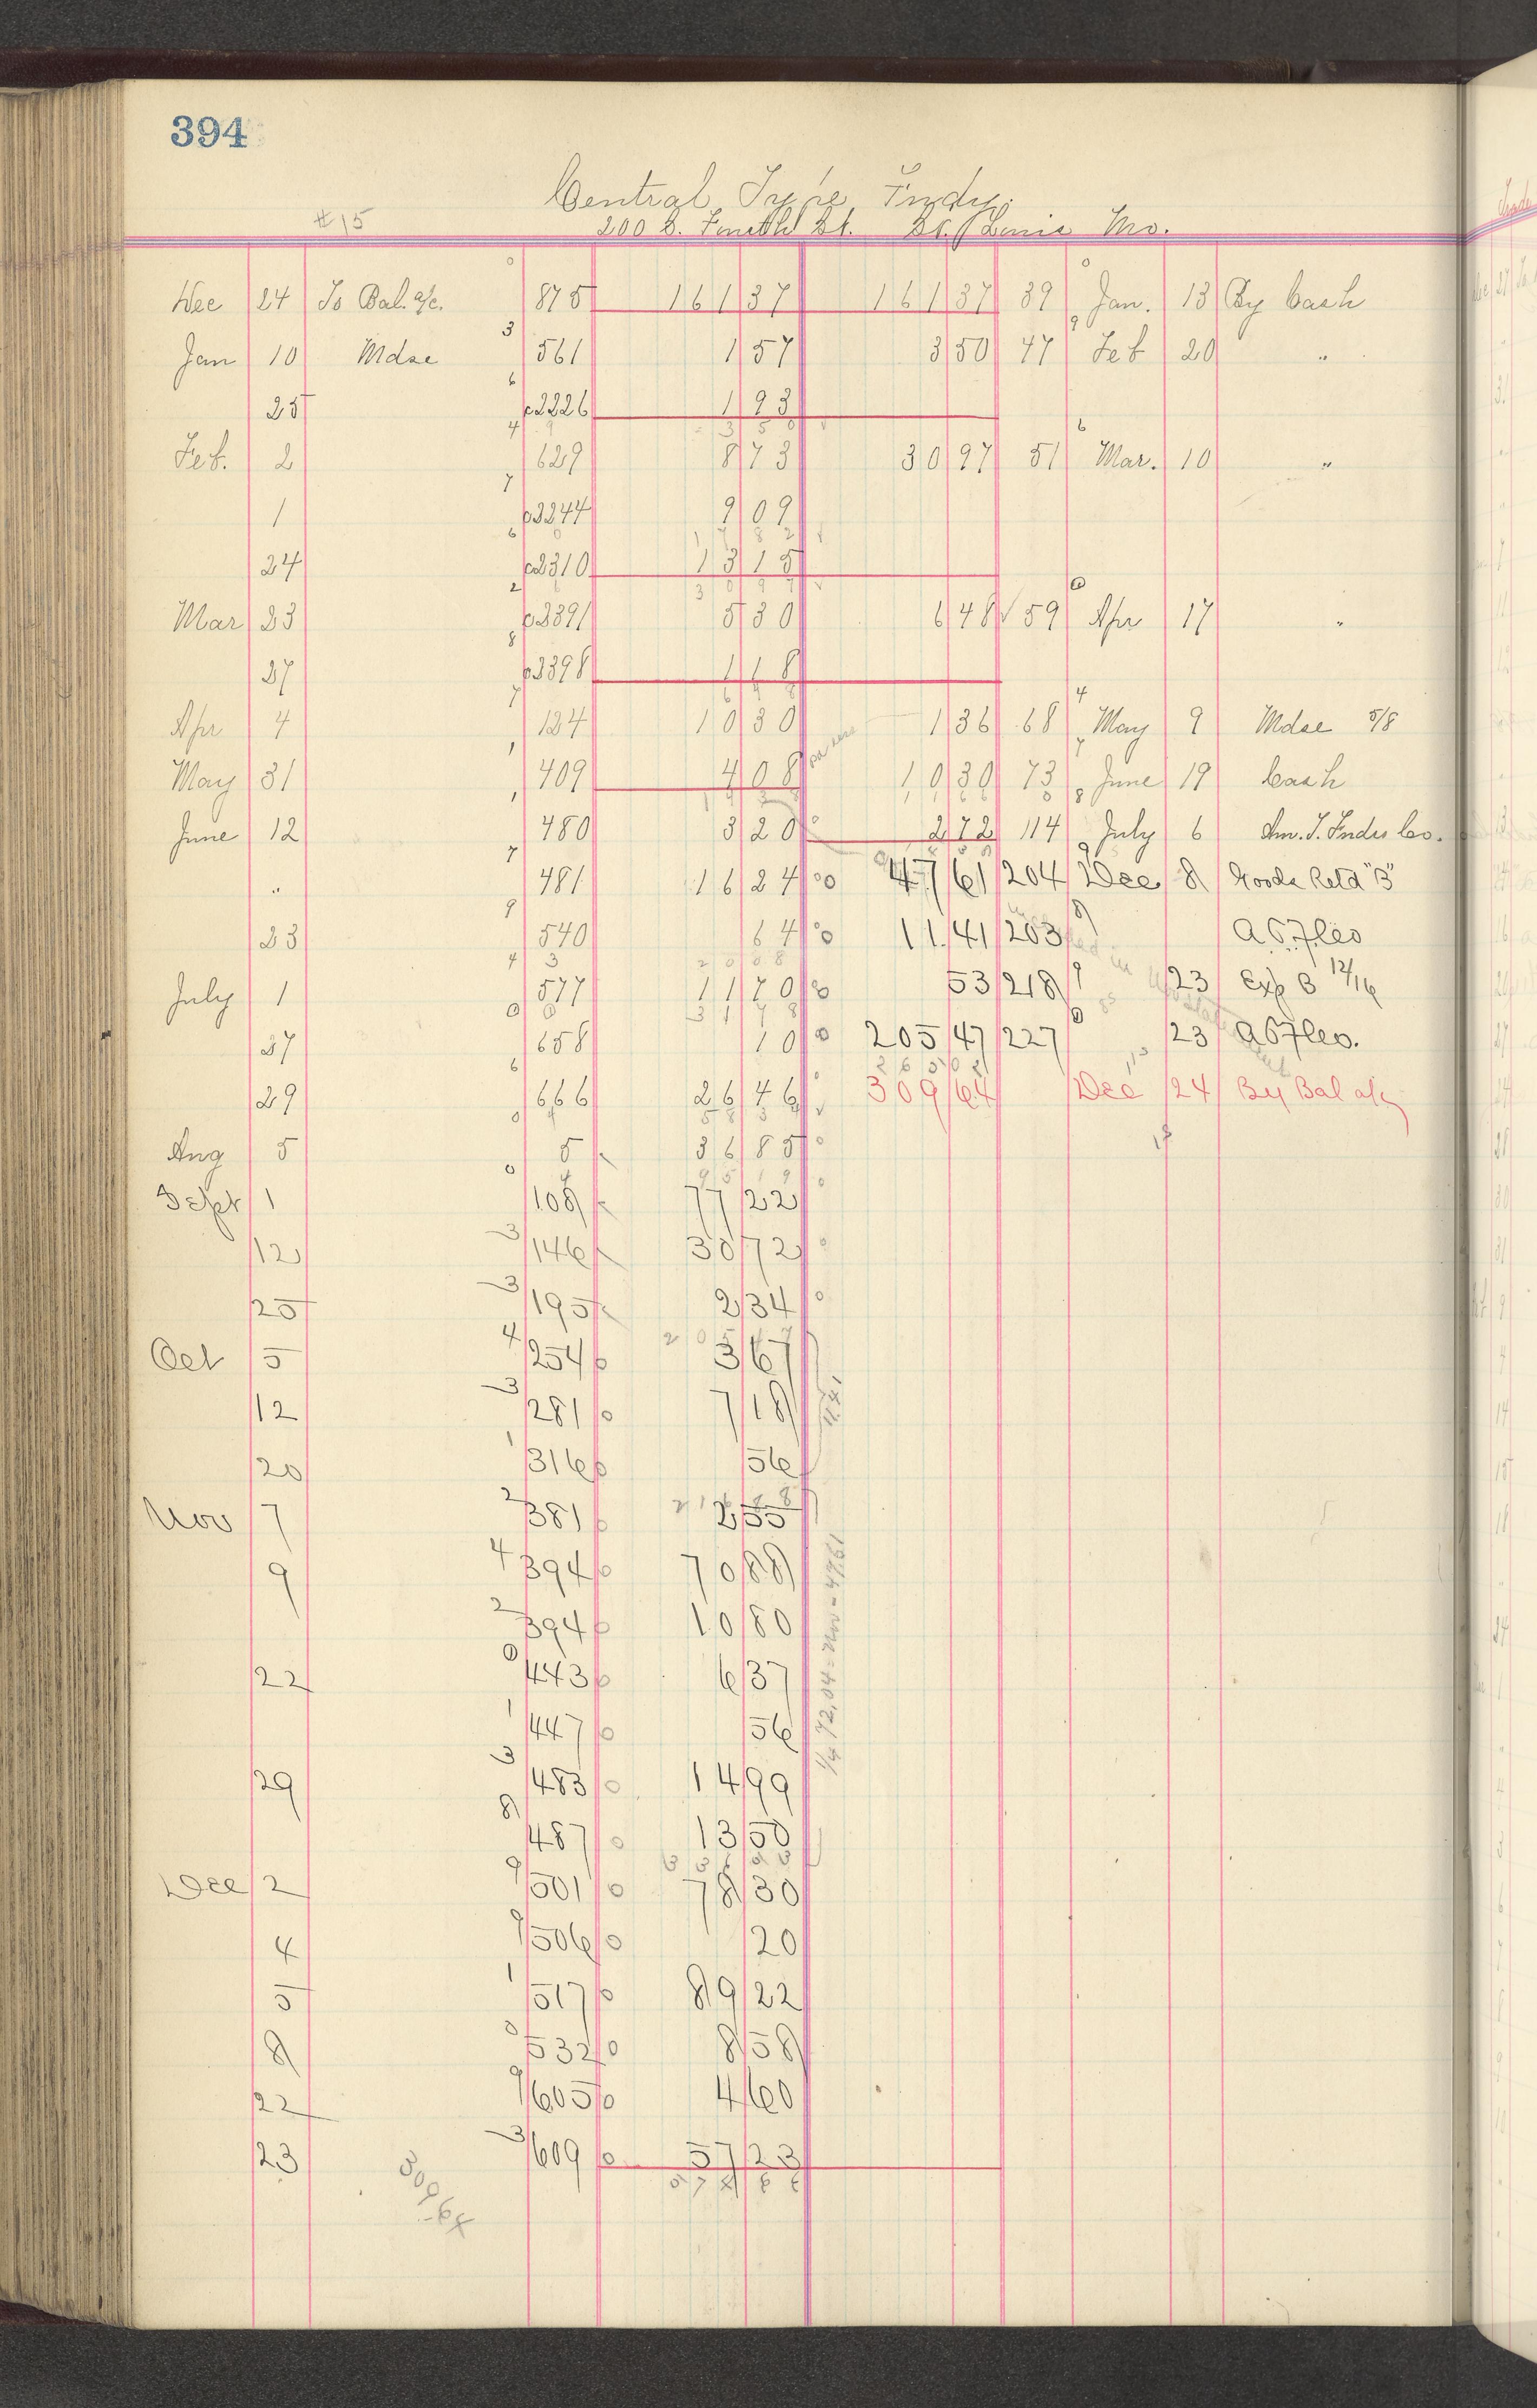 394
Central Type Fndy.
#15 200 S. Fourth St. St. Louis Mo.
Dec 24 To Bal. a/c. 875 161 37 161 37 39 Jan. 13 By Cash
Jan 10 Mdse 561 1 57 3 50 47 Feb 20 "
25 c2226 1 93
3 50
Feb. 2 629 8 73 30 97 51 Mar. 10 "
1 c2244 9 09
17 82
24 c2310 13 15
30 97
Mar 23 c2391 5 30 6 48 59 Apr 17 "
27 c2398 1 18
6 48
Apr 4 124 10 30 1 36 68 May 9 Mdse 5/8
May 31 409 4 08 10 30 73 June 19 Cash
June 12 480 3 20 2 72 114 July 6 Am. T. Fndrs Co.
" 481 16 24 47 61 204 Dec 8 Goods Retd "B"
23 540 64 11 41 203 A T F Co
20 08
July 1 577 11 70 53 218 23 Exp B 12/16
31 78
27 658 10 205 47 227 23 A T F Co.
265 02
29 666 26 46 309 64 Dec 24 By Bal a/c
58 34
Aug 5 5 36 85
95 19
Sept 1 108 77 22
12 146 30 72
25 195 2 34
205 47
Oct 5 254 3 67
12 281 7 18
20 316 56
11.41
216 88
Nov 7 381 2 55
9 394 70 88
394 10 80
22 443 6 37
447 56
29 483 14 99
487 13 50
1/4 72.04 = Nov = 47.61
Dec 2 501 78 30
4 506 20
5 517 89 22
8 532 8 58
22 605 4 60
23 609 57 23
574 66
309.64